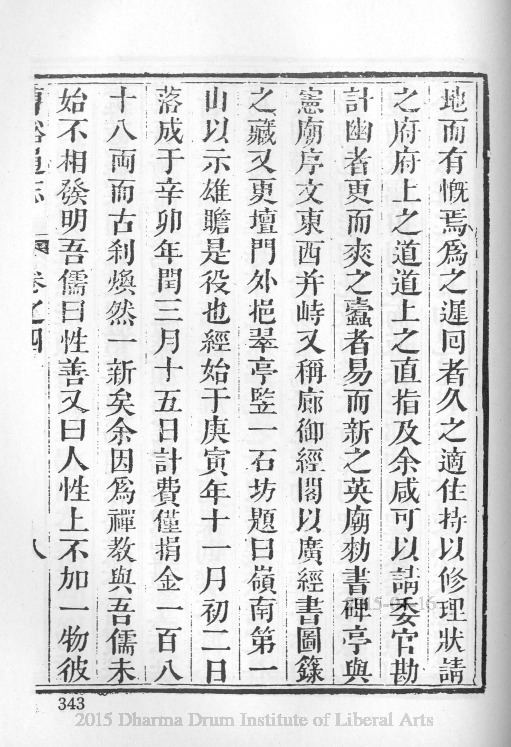 地而有慨焉爲之遲囘者久之適住持以修理狀請
之府府上之道道上之直指及余咸可以請委官勘
計幽者更而爽之蠧者易而新之英廟勑書碑亭與
憲廟序文東西并峙又稱廊御經閣以廣經書圖籙
之藏又更壇門外挹翠亭竪一石坊題曰嶺南第一
山以示雄瞻是役也經始于庚寅年十一月初二日
落成于辛卯年閏三月十五日計費僅捐金一百八
十八両而古刹煥然一新矣余因爲禪教與吾儒未
始不相發明吾儒曰性善又曰人性上不加一物彼
曹谿通志 卷之四 八
343
2015 Dharma Drum Institute of Liberal Arts